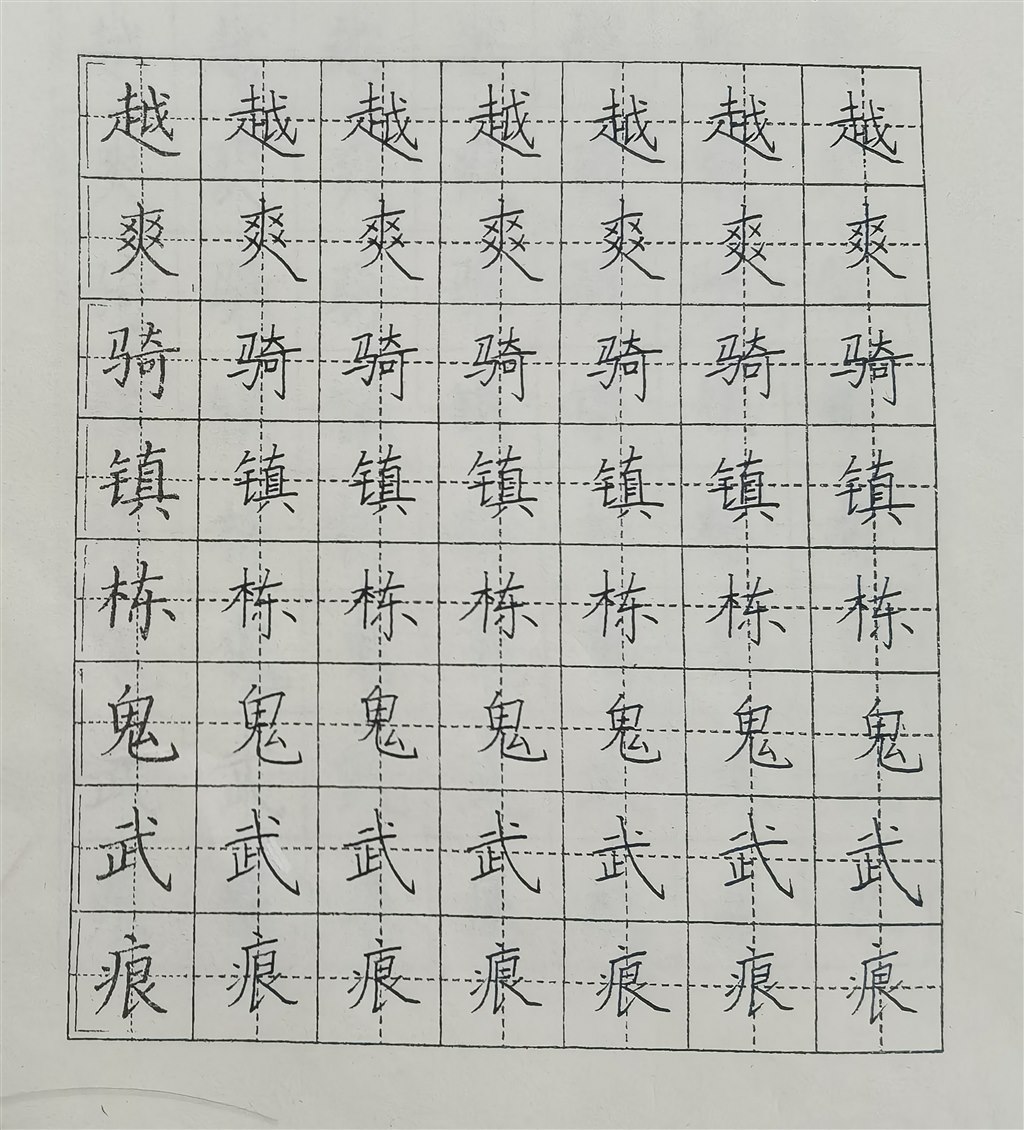 越越越越越越越
爽爽爽爽爽爽爽
骑骑骑骑骑骑骑
镇镇镇镇镇镇镇
栋栋栋栋栋栋栋
鬼鬼鬼鬼鬼鬼鬼
武武武武武武武
痕痕痕痕痕痕痕